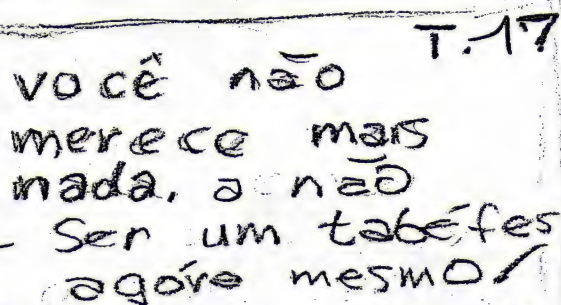 T.17
você não
merece mais
nada, a não
- Ser um tabéfes
agóra mesmo!